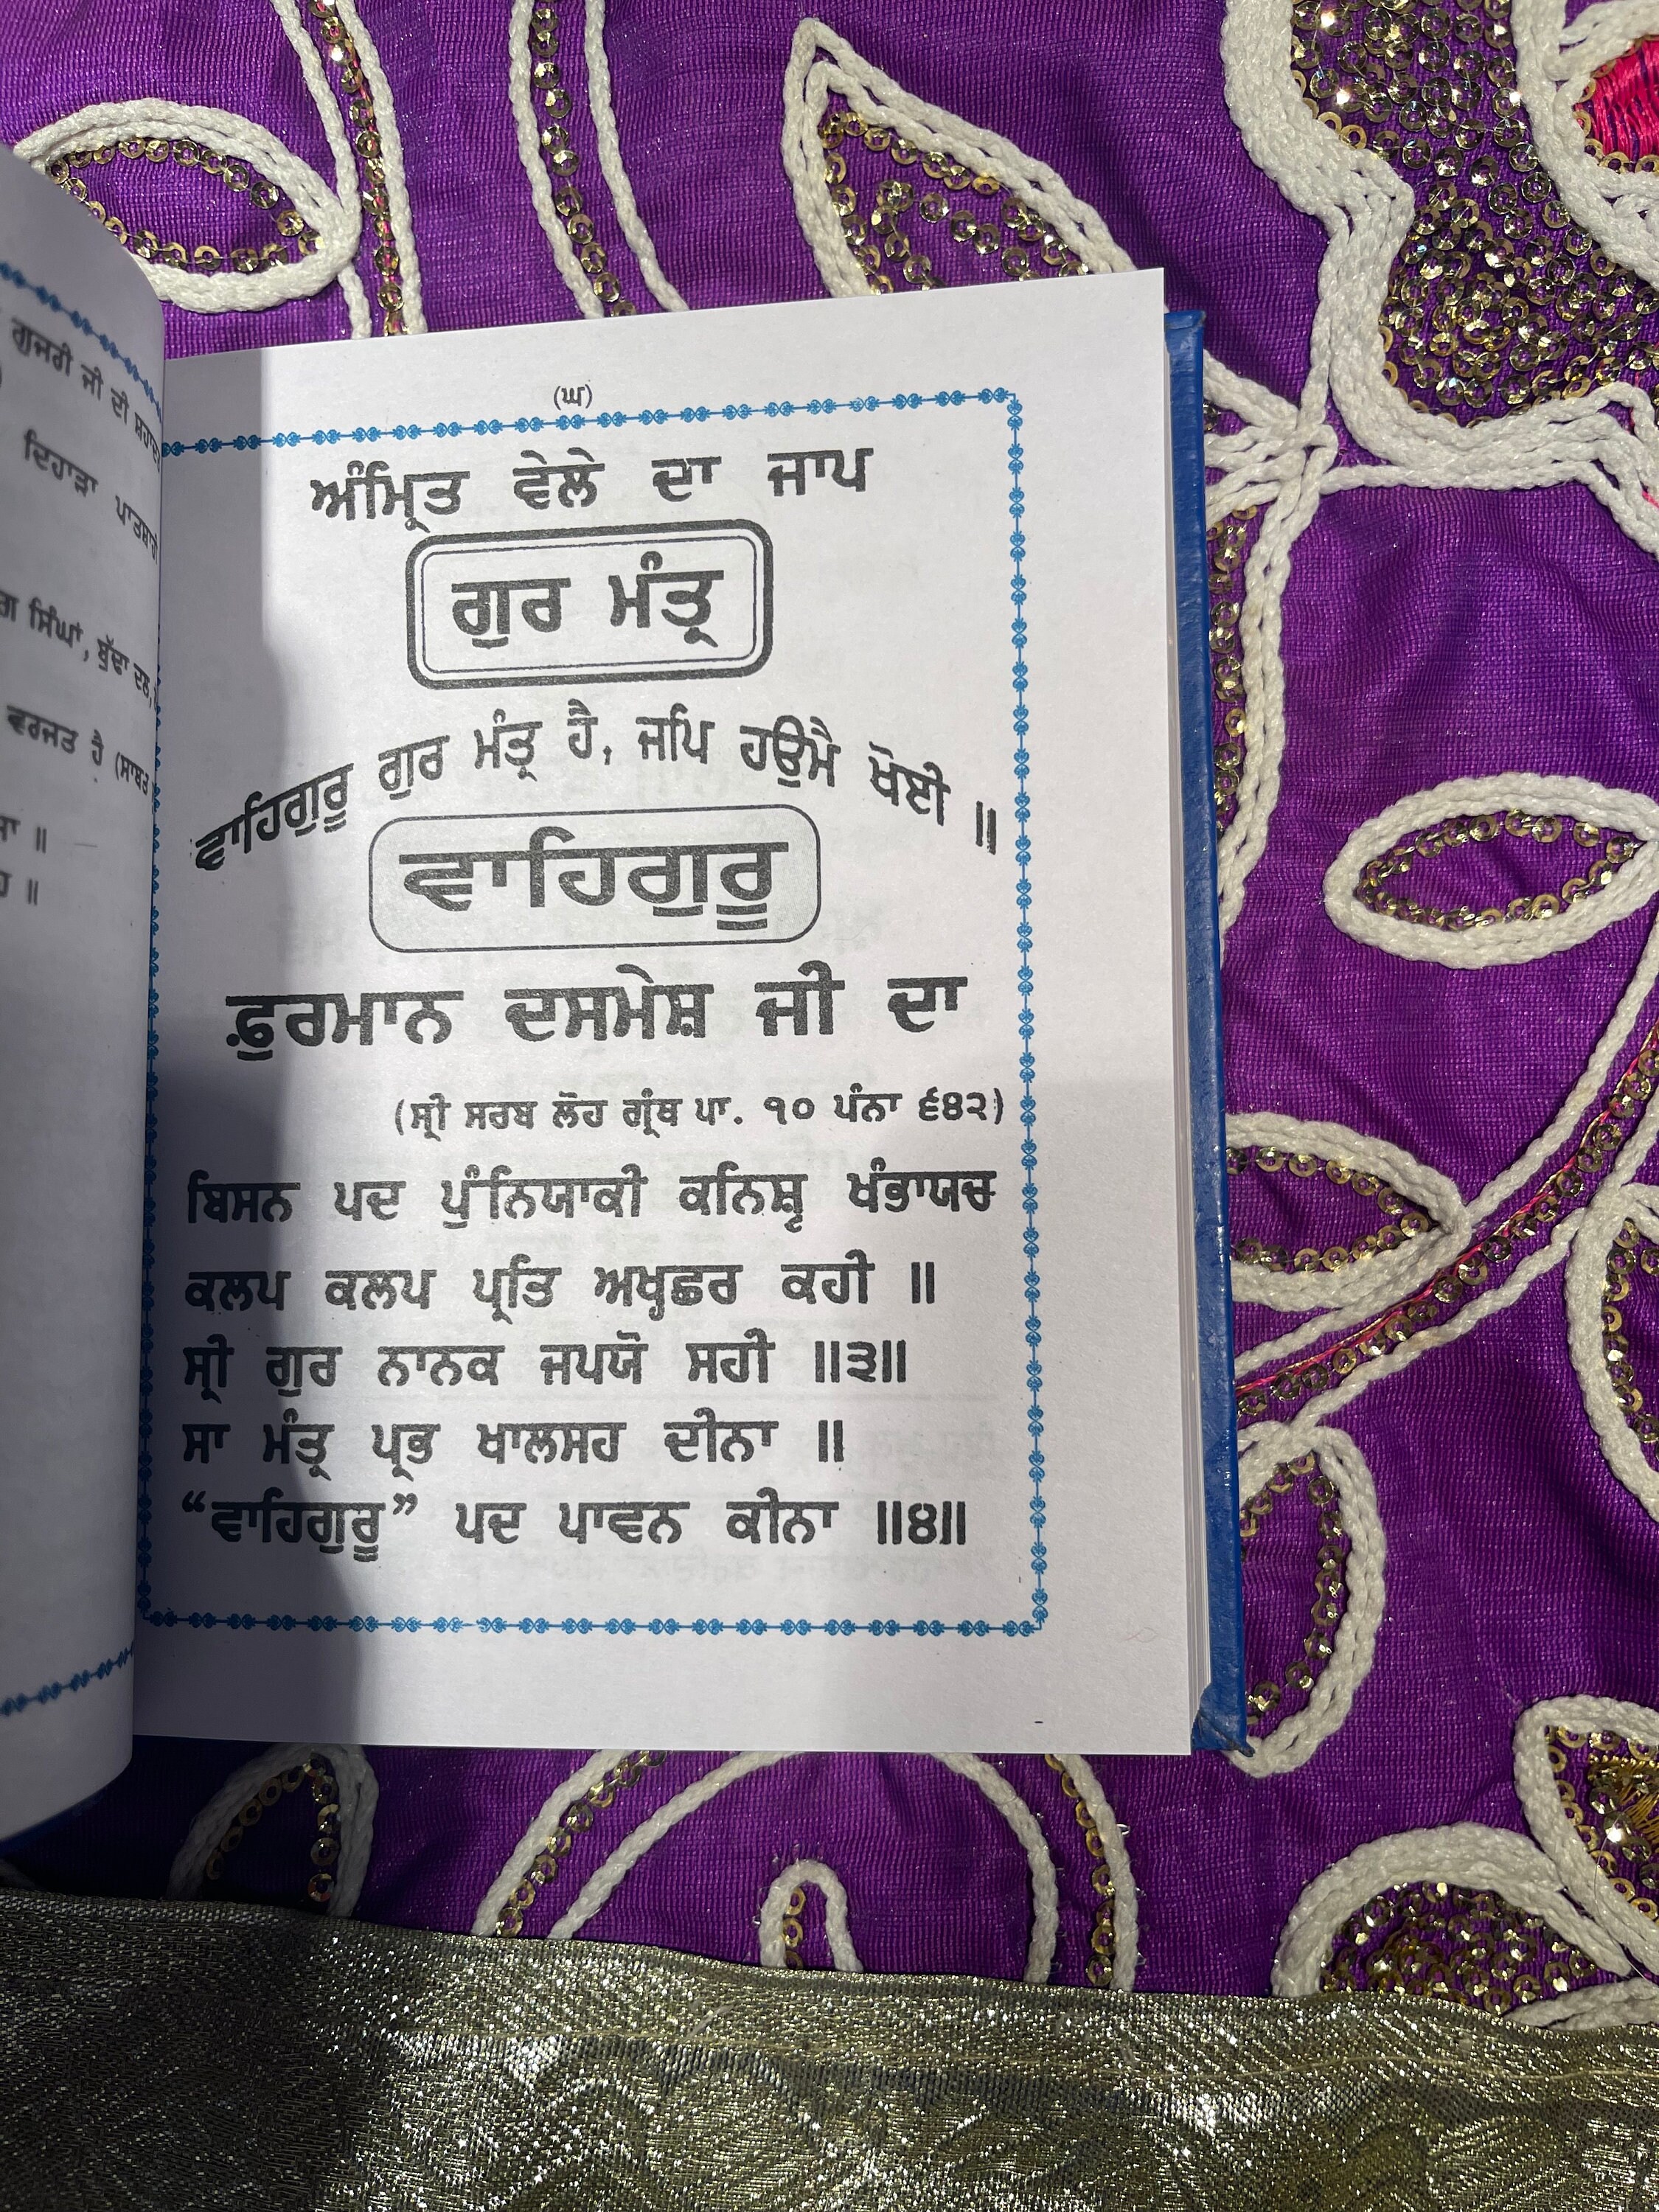 ਗੁਜਰੀ ਜੀ ਦੀ
ਦਿਹਾੜਾ
ਸਿੰਘਾਂ, ਬੁੱਢਾ ਦਲ,
ਵਰਜਤ ਹੈ
॥
॥
(ਘ)
ਅੰਮ੍ਰਿਤ ਵੇਲੇ ਦਾ ਜਾਪ
ਗੁਰ ਮੰਤ੍ਰ
ਵਾਹਿਗੁਰੂ ਗੁਰ ਮੰਤ੍ਰ ਹੈ, ਜਪਿ ਹਉਮੈ ਖੋਈ ॥
ਵਾਹਿਗੁਰੂ
ਫ਼ੁਰਮਾਨ ਦਸਮੇਸ਼ ਜੀ ਦਾ
(ਸ੍ਰੀ ਸਰਬ ਲੋਹ ਗ੍ਰੰਥ ਪਾ. ੧੦ ਪੰਨਾ ੬੪੨)
ਬਿਸਨ ਪਦ ਪੁੰਨਿਯਾਕੀ ਕਨਿਸ਼੍ਟ ਖੰਭਾਯਚ
ਕਲਪ ਕਲਪ ਪ੍ਰਤਿ ਅਖੵਛਰ ਕਹੀ ॥
ਸ੍ਰੀ ਗੁਰ ਨਾਨਕ ਜਪਯੋ ਸਹੀ ॥੩॥
ਸਾ ਮੰਤ੍ਰ ਪ੍ਰਭ ਖਾਲਸਹ ਦੀਨਾ ॥
“ਵਾਹਿਗੁਰੂ” ਪਦ ਪਾਵਨ ਕੀਨਾ ॥੪॥